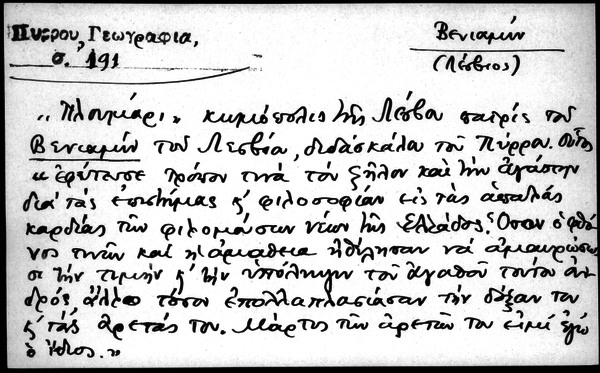 Πύρρου, Γεωγραφία,
σ. 191
Βενιαμίν
(Λέσβιος)
„Πλουμάρι„ κωμόπολις της Λέσβου πατρίς του
Βενιαμίν του Λεσβίου, διδασκάλου του Πύρρου. Ούτος
„ εφύτευσε τρόπον τινά τον ζήλον και την αγάπην
δια τας επιστήμας κ' φιλοσοφίαν εις τας απαλάς
καρδίας των φιλομούσων νέων της Ελλάδος. Όσον ο φθό
νος τινών και η αμάθεια ηθέλησαν να αμαυρώσω
σι την τιμήν κ' την υπόληψιν του αγαθού τούτου αν
δρός, άλλο τόσον επολλαπλασίασαν την δόξαν του
κ' τας αρετάς του. Μάρτυς των αρετών του ειμί εγώ
ο ίδιος.„